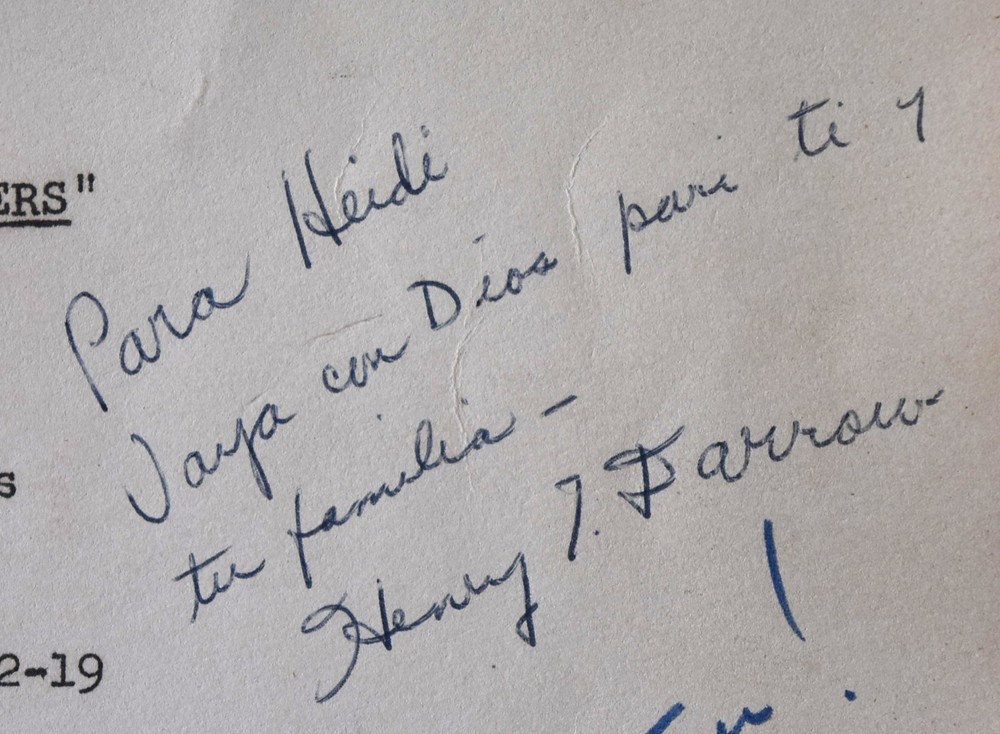 ERS"
Para Heidi
Vaya con Dios para ti y
tu familia -
Henry J. Darrow
s
2-19